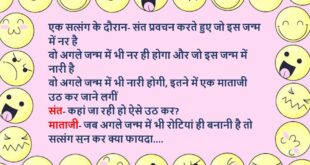 एक सत्संग के दौरान- संत प्रवचन करते हुए जो इस जन्म
में नर है
वो अगले जन्म में भी नर ही होगा और जो इस जन्म में
नारी है
वो अगले जन्म में भी नारी होगी, इतने में एक माताजी
उठ कर जाने लगीं
संत- कहां जा रही हो ऐसे उठ कर?
माताजी- जब अगले जन्म में भी रोटियां ही बनानी है तो
सत्संग सुन कर क्या फायदा....